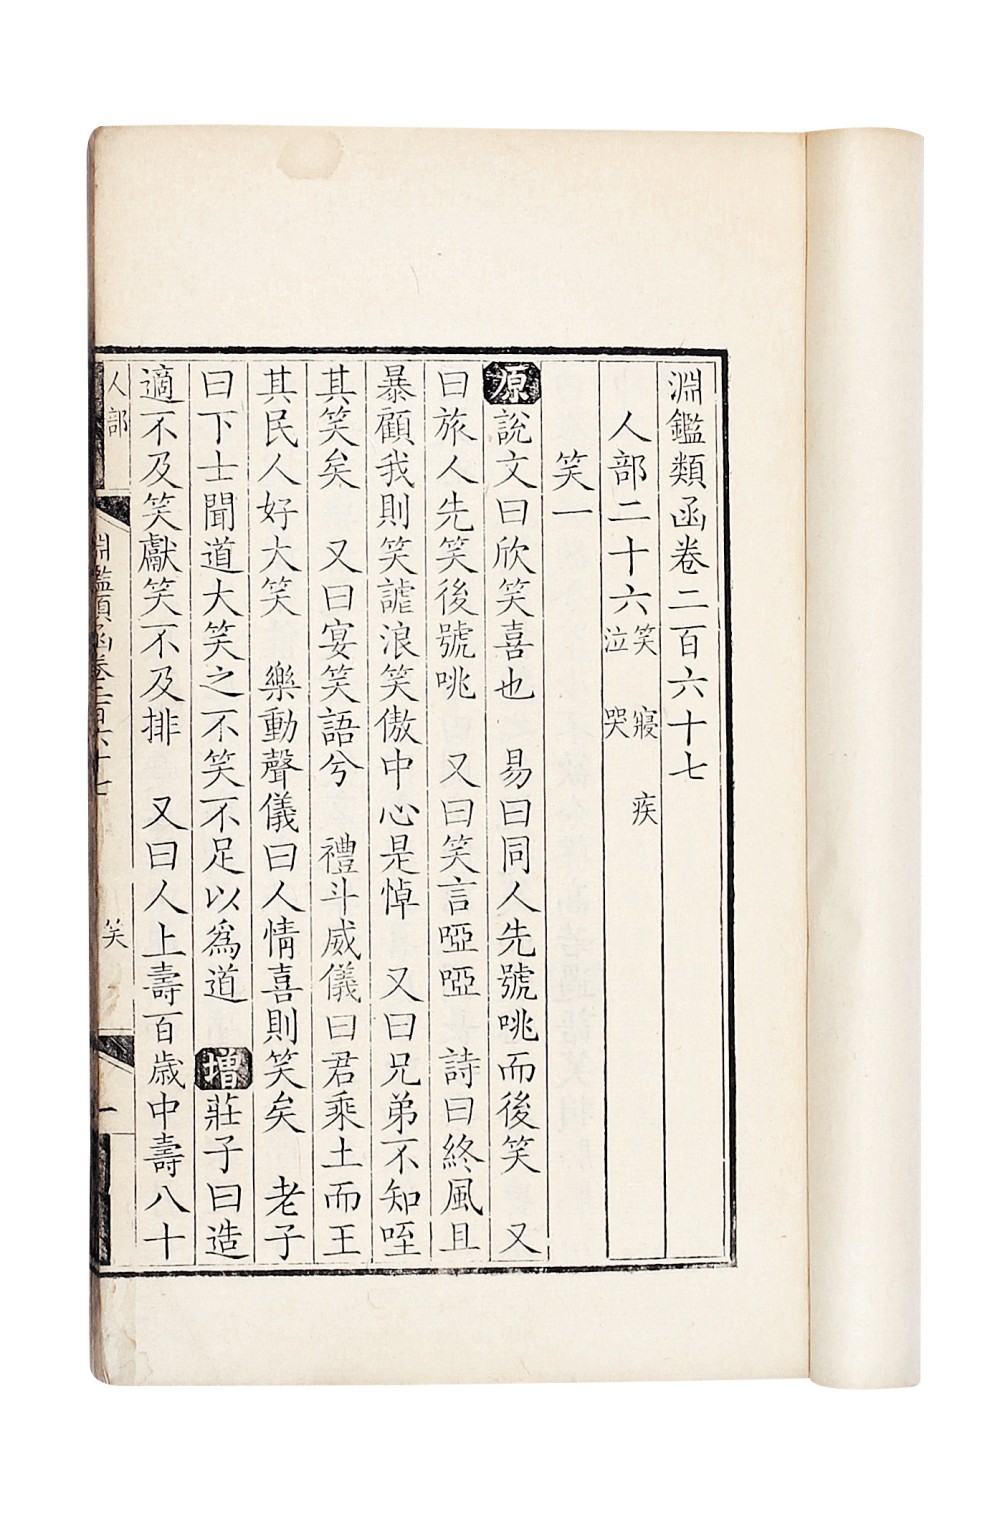 淵鑑類函卷二百六十七
人部二十六 笑 寢 疾 泣 哭
笑一
原 說文曰欣笑喜也 易曰同人先號咷而後笑 又
曰旅人先笑後號咷 又曰笑言啞啞 詩曰終風且
暴顧我則笑謔浪笑傲中心是悼 又曰兄弟不知咥
其笑矣 又曰宴笑語兮 禮斗威儀曰君乘土而王
其民人好大笑 樂動聲儀曰人情喜則笑矣 老子
曰下士聞道大笑之不笑不足以爲道 增 莊子曰造
適不及笑獻笑不及排 又曰人上壽百歲中壽八十
人部
淵鑑類函卷二百六十七
笑
一